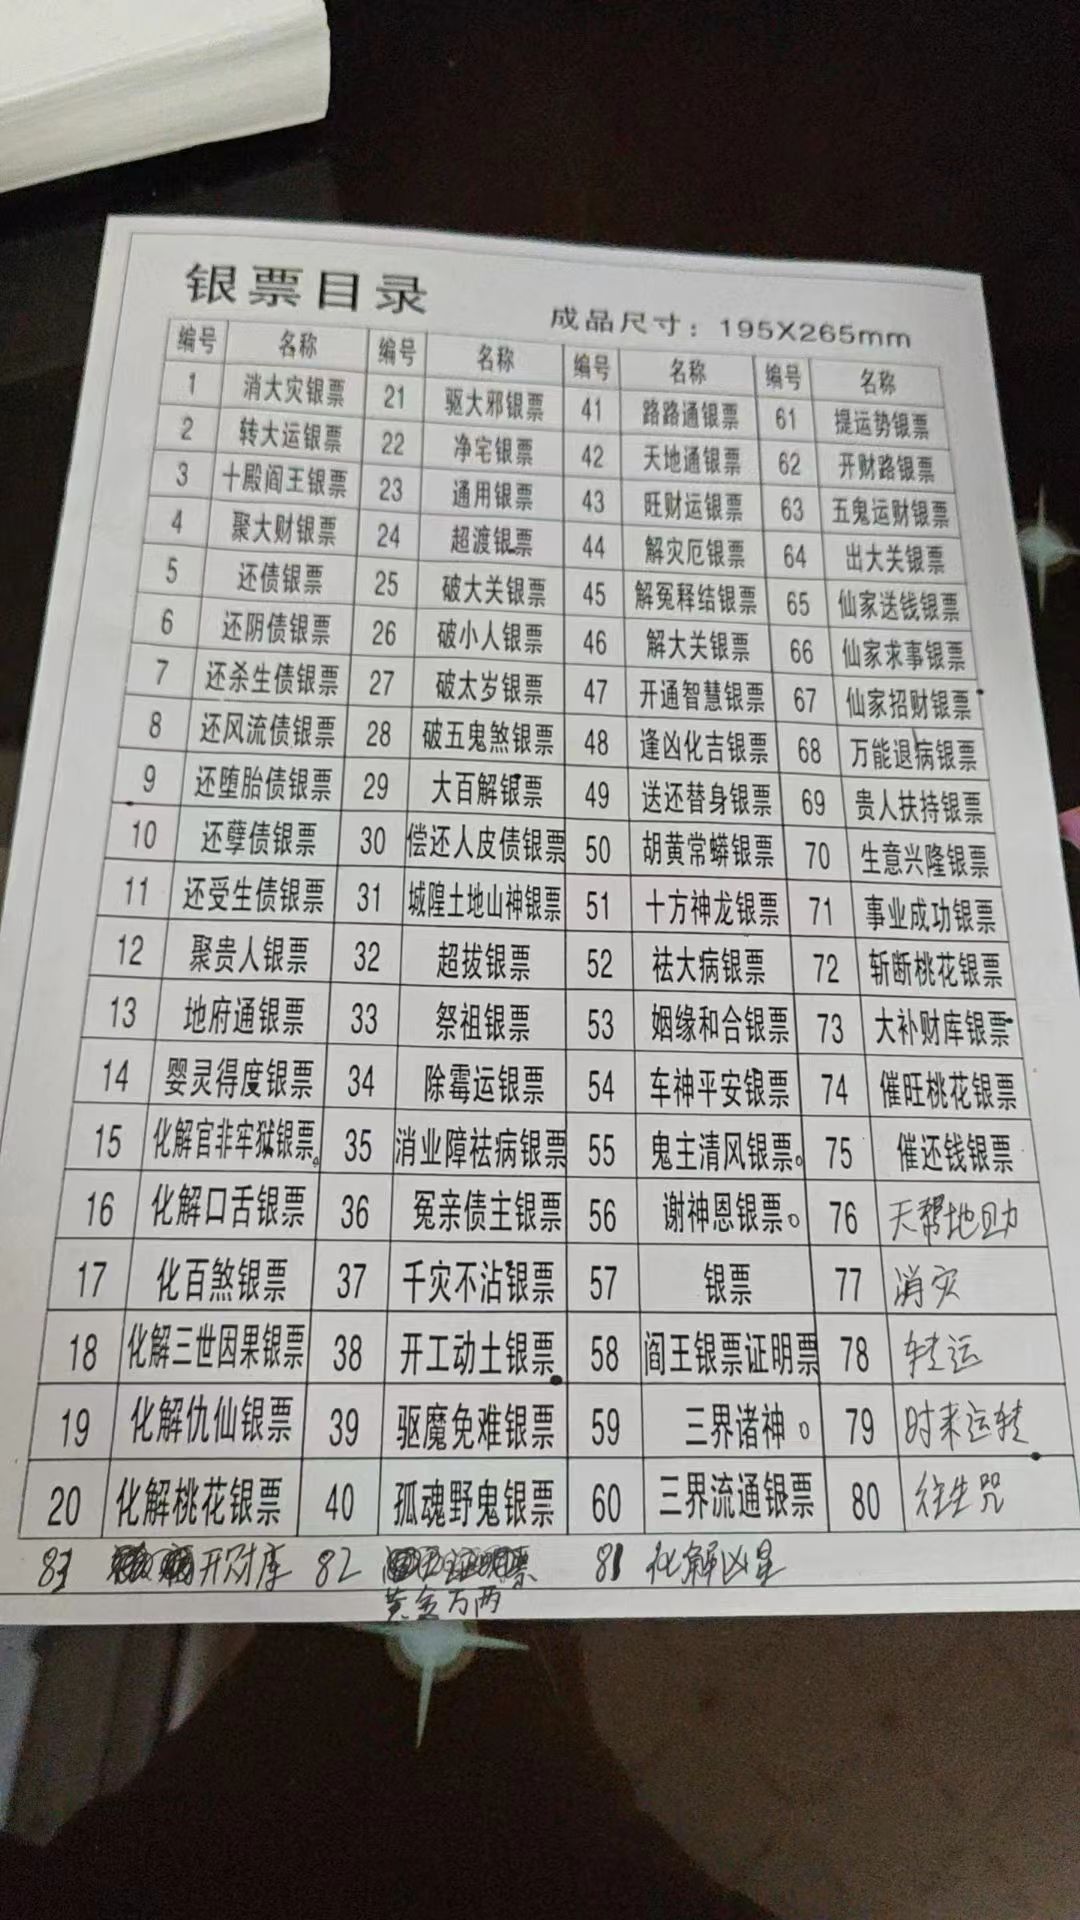 银票目录
成品尺寸：195X265mm
编号 名称 编号 名称 编号 名称 编号 名称
1 消大灾银票 21 驱大邪银票 41 路路通银票 61 提运势银票
2 转大运银票 22 净宅银票 42 天地通银票 62 开财路银票
3 十殿阎王银票 23 通用银票 43 旺财运银票 63 五鬼运财银票
4 聚大财银票 24 超渡银票 44 解灾厄银票 64 出大关银票
5 还债银票 25 破大关银票 45 解冤释结银票 65 仙家送钱银票
6 还阴债银票 26 破小人银票 46 解大关银票 66 仙家求事银票
7 还杀生债银票 27 破太岁银票 47 开通智慧银票 67 仙家招财银票
8 还风流债银票 28 破五鬼煞银票 48 逢凶化吉银票 68 万能退病银票
9 还堕胎债银票 29 大百解银票 49 送还替身银票 69 贵人扶持银票
10 还孽债银票 30 偿还人皮债银票 50 胡黄常蟒银票 70 生意兴隆银票
11 还受生债银票 31 城隍土地山神银票 51 十方神龙银票 71 事业成功银票
12 聚贵人银票 32 超拔银票 52 祛大病银票 72 斩断桃花银票
13 地府通银票 33 祭祖银票 53 姻缘和合银票 73 大补财库银票
14 婴灵得度银票 34 除霉运银票 54 车神平安银票 74 催旺桃花银票
15 化解官非牢狱银票。 35 消业障祛病银票 55 鬼主清风银票。 75 催还钱银票
16 化解口舌银票 36 冤亲债主银票 56 谢神恩银票。 76 天帮地助
17 化百煞银票 37 千灾不沾银票 57 银票 77 消灾
18 化解三世因果银票 38 开工动土银票 58 阎王银票证明票 78 转运
19 化解仇仙银票 39 驱魔免难银票 59 三界诸神。 79 时来运转
20 化解桃花银票 40 孤魂野鬼银票 60 三界流通银票 80 往生咒
83 开财库 82 81 化解凶星
黄金万两